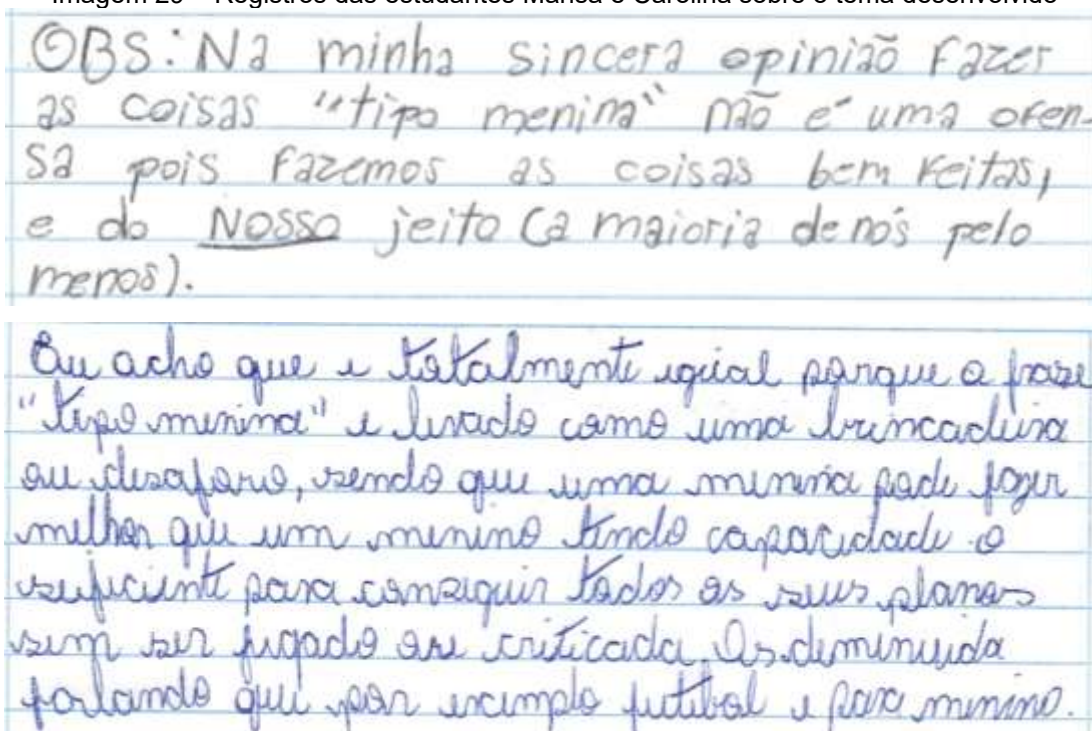 Imagem 29 – Registros das estudantes Marisa e Carolina sobre o tema desenvolvido
OBS: Na minha sincera opinião fazer
as coisas "tipo menina" não é uma ofen-
sa pois fazemos as coisas bem feitas,
e do NOSSO jeito (a maioria de nós pelo
menos).
Eu acho que e totalmente igual porque a frase
"tipo menina" e levado como uma brincadeira
ou desaforo, sendo que uma menina pode fazer
melhor que um menino tendo capacidade o
suficiente para conseguir todos os seus planos
sem ser jugado ou criticada. Os deminuida
falando que por exemplo futibol e para menino.